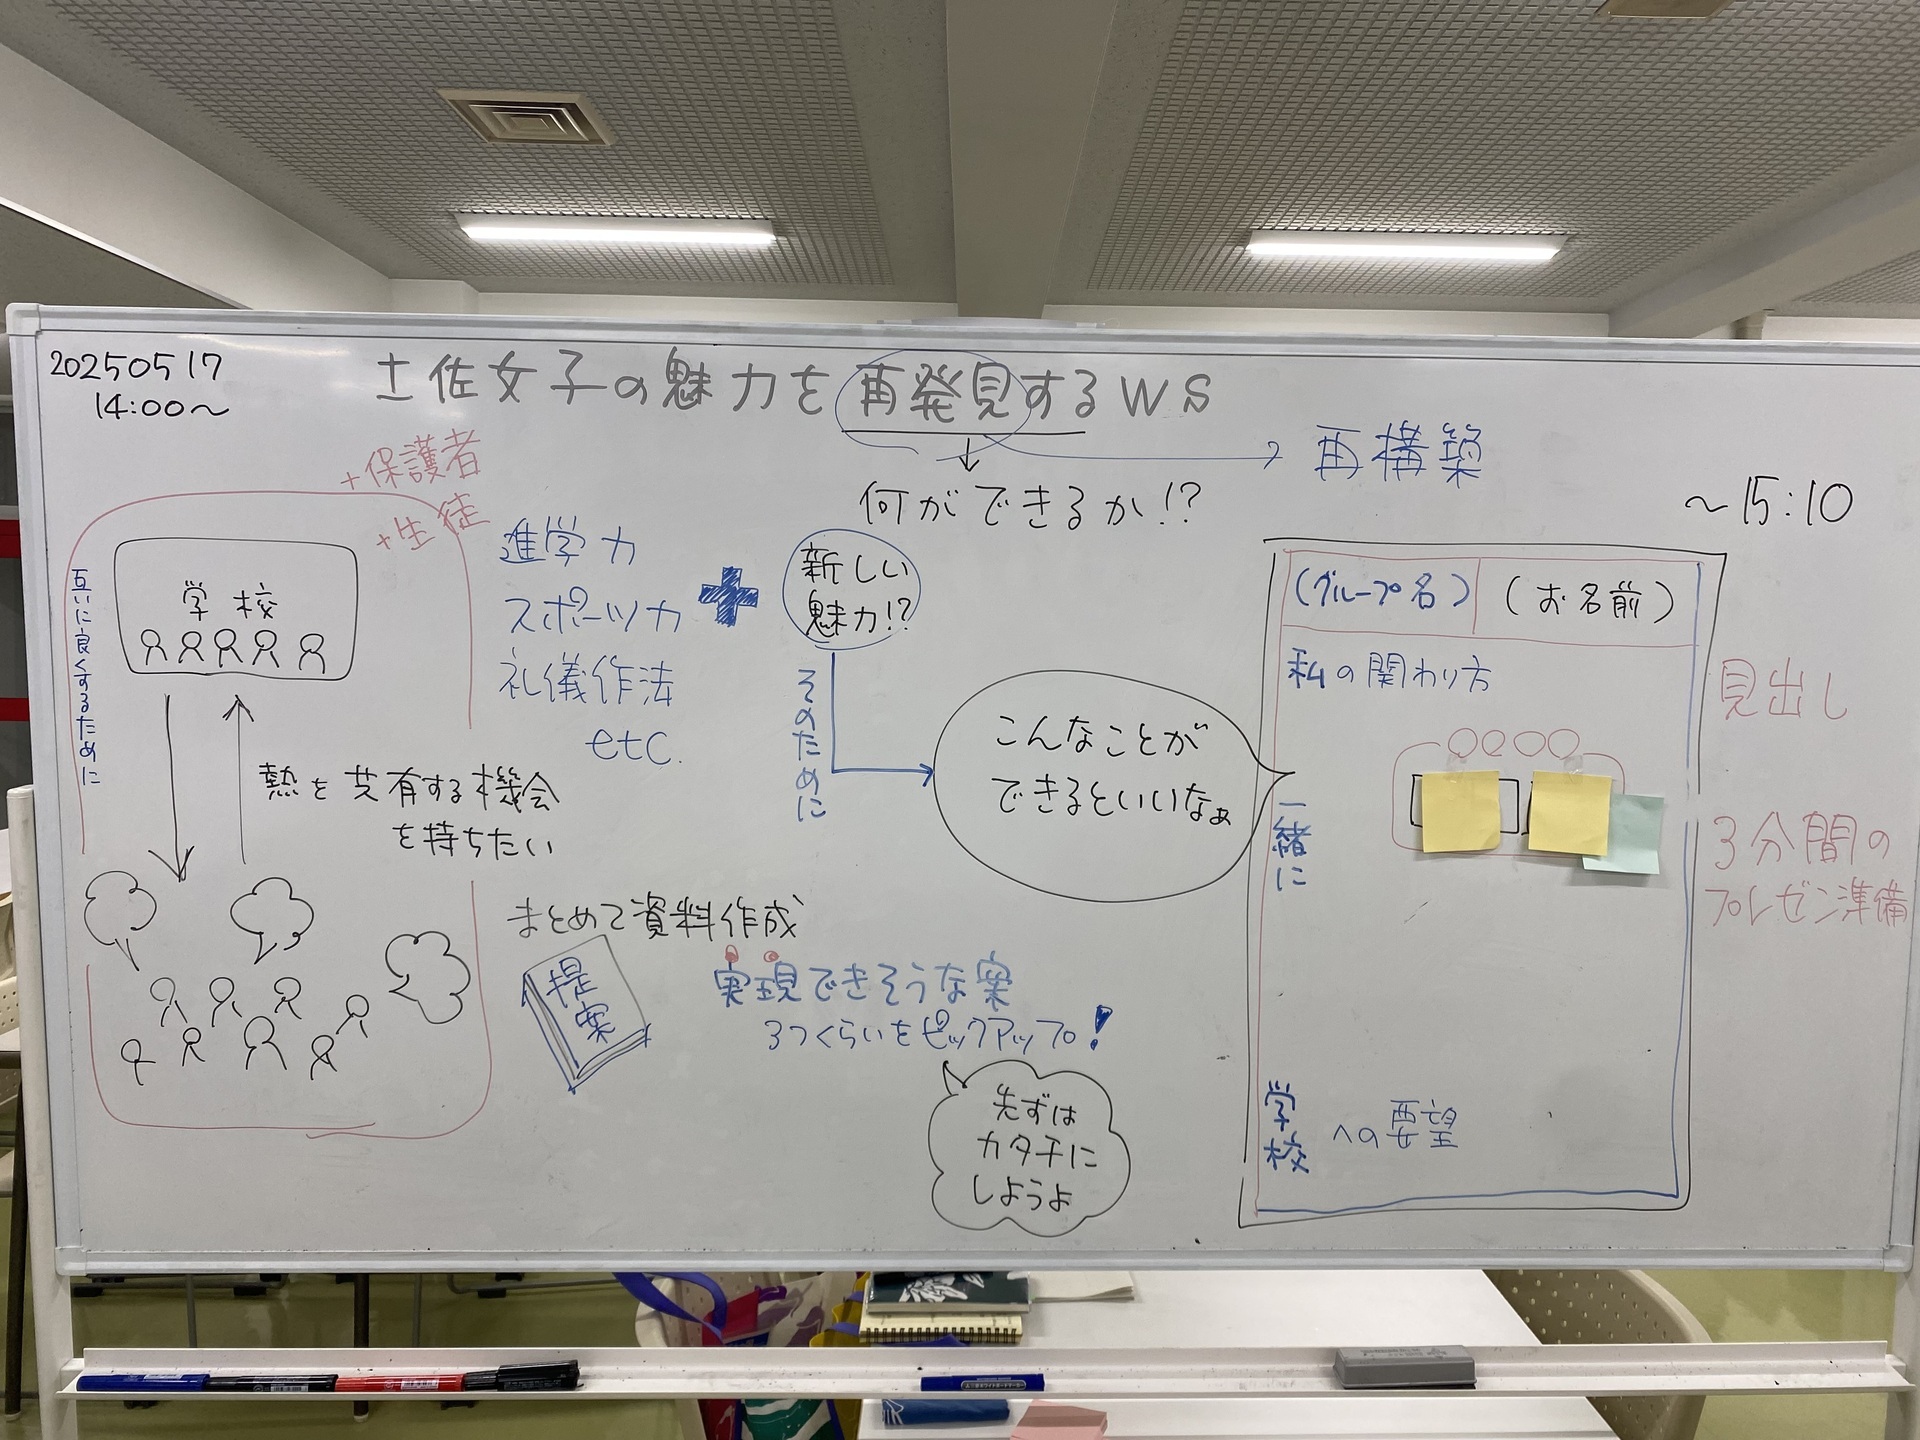 20250517
14:00～
土佐女子の魅力を再発見するWS
何ができるか!?
再構築
～15:10
+保護者
+生徒
学校
互いに良くするために
熱を共有する機会
を持ちたい
進学力
スポーツ力
礼儀作法
etc.
新しい
魅力!?
そのために
こんなことが
できるといいなぁ
まとめて資料作成
提案
実現できそうな案
3つくらいをピックアップ!
先ずは
カタチに
しようよ
(グループ名)
(お名前)
私の関わり方
一緒に
学校への要望
見出し
3分間の
プレゼン準備